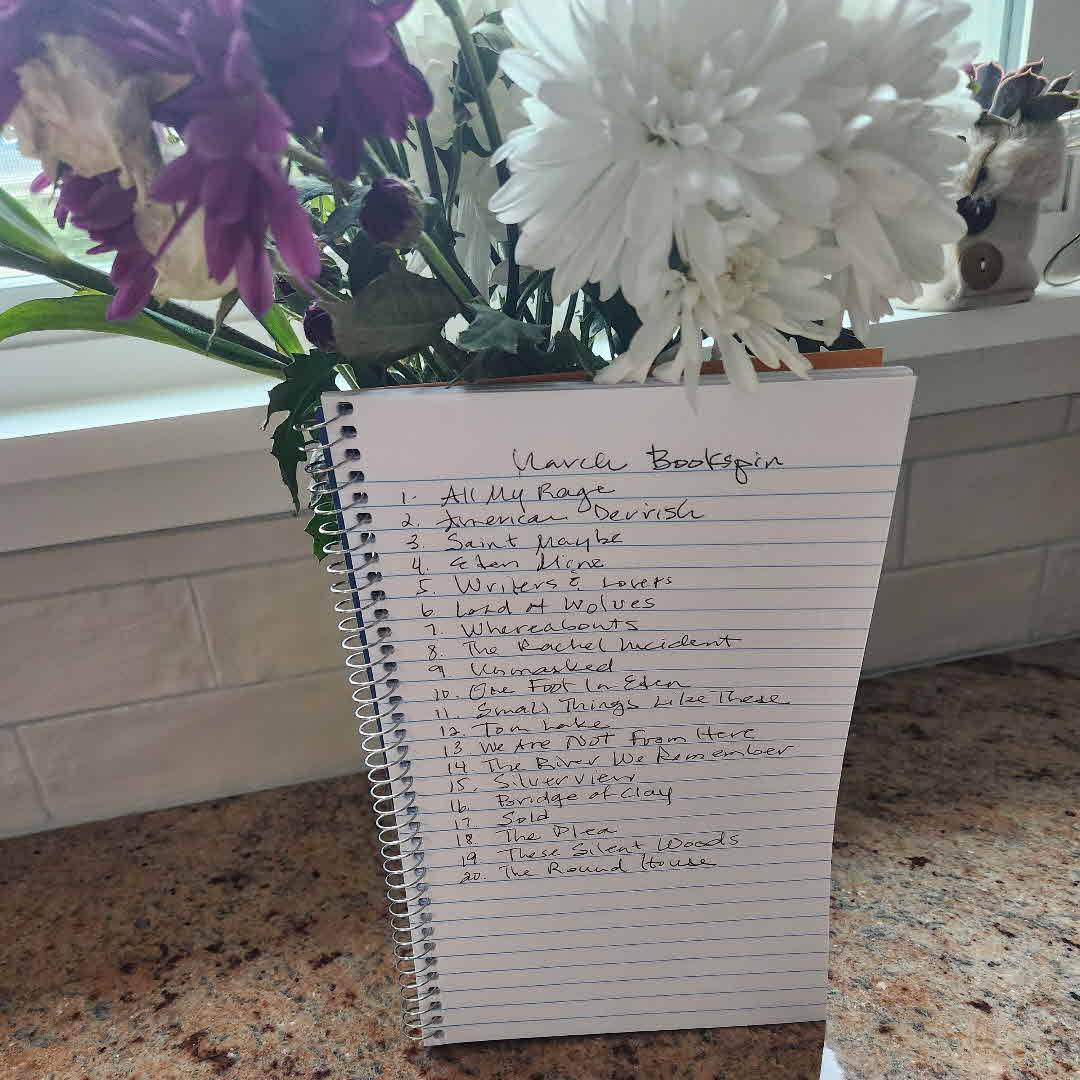 March Bookspin
1. All My Rage
2. American Dervish
3. Saint Maybe
4. Eden Mine
5. Writers & Lovers
6. Land of Wolves
7. Whereabouts
8. The Rachel Incident
9 Unmasked
10. One Foot In Eden
11. Small Things Like These
12. Tom Lake
13 We Are Not From Here
14. The River We Remember
15. Silverview
16. Bridge of Clay
17 Sold
18 The Plea
19 These Silent Woods
20. The Round House